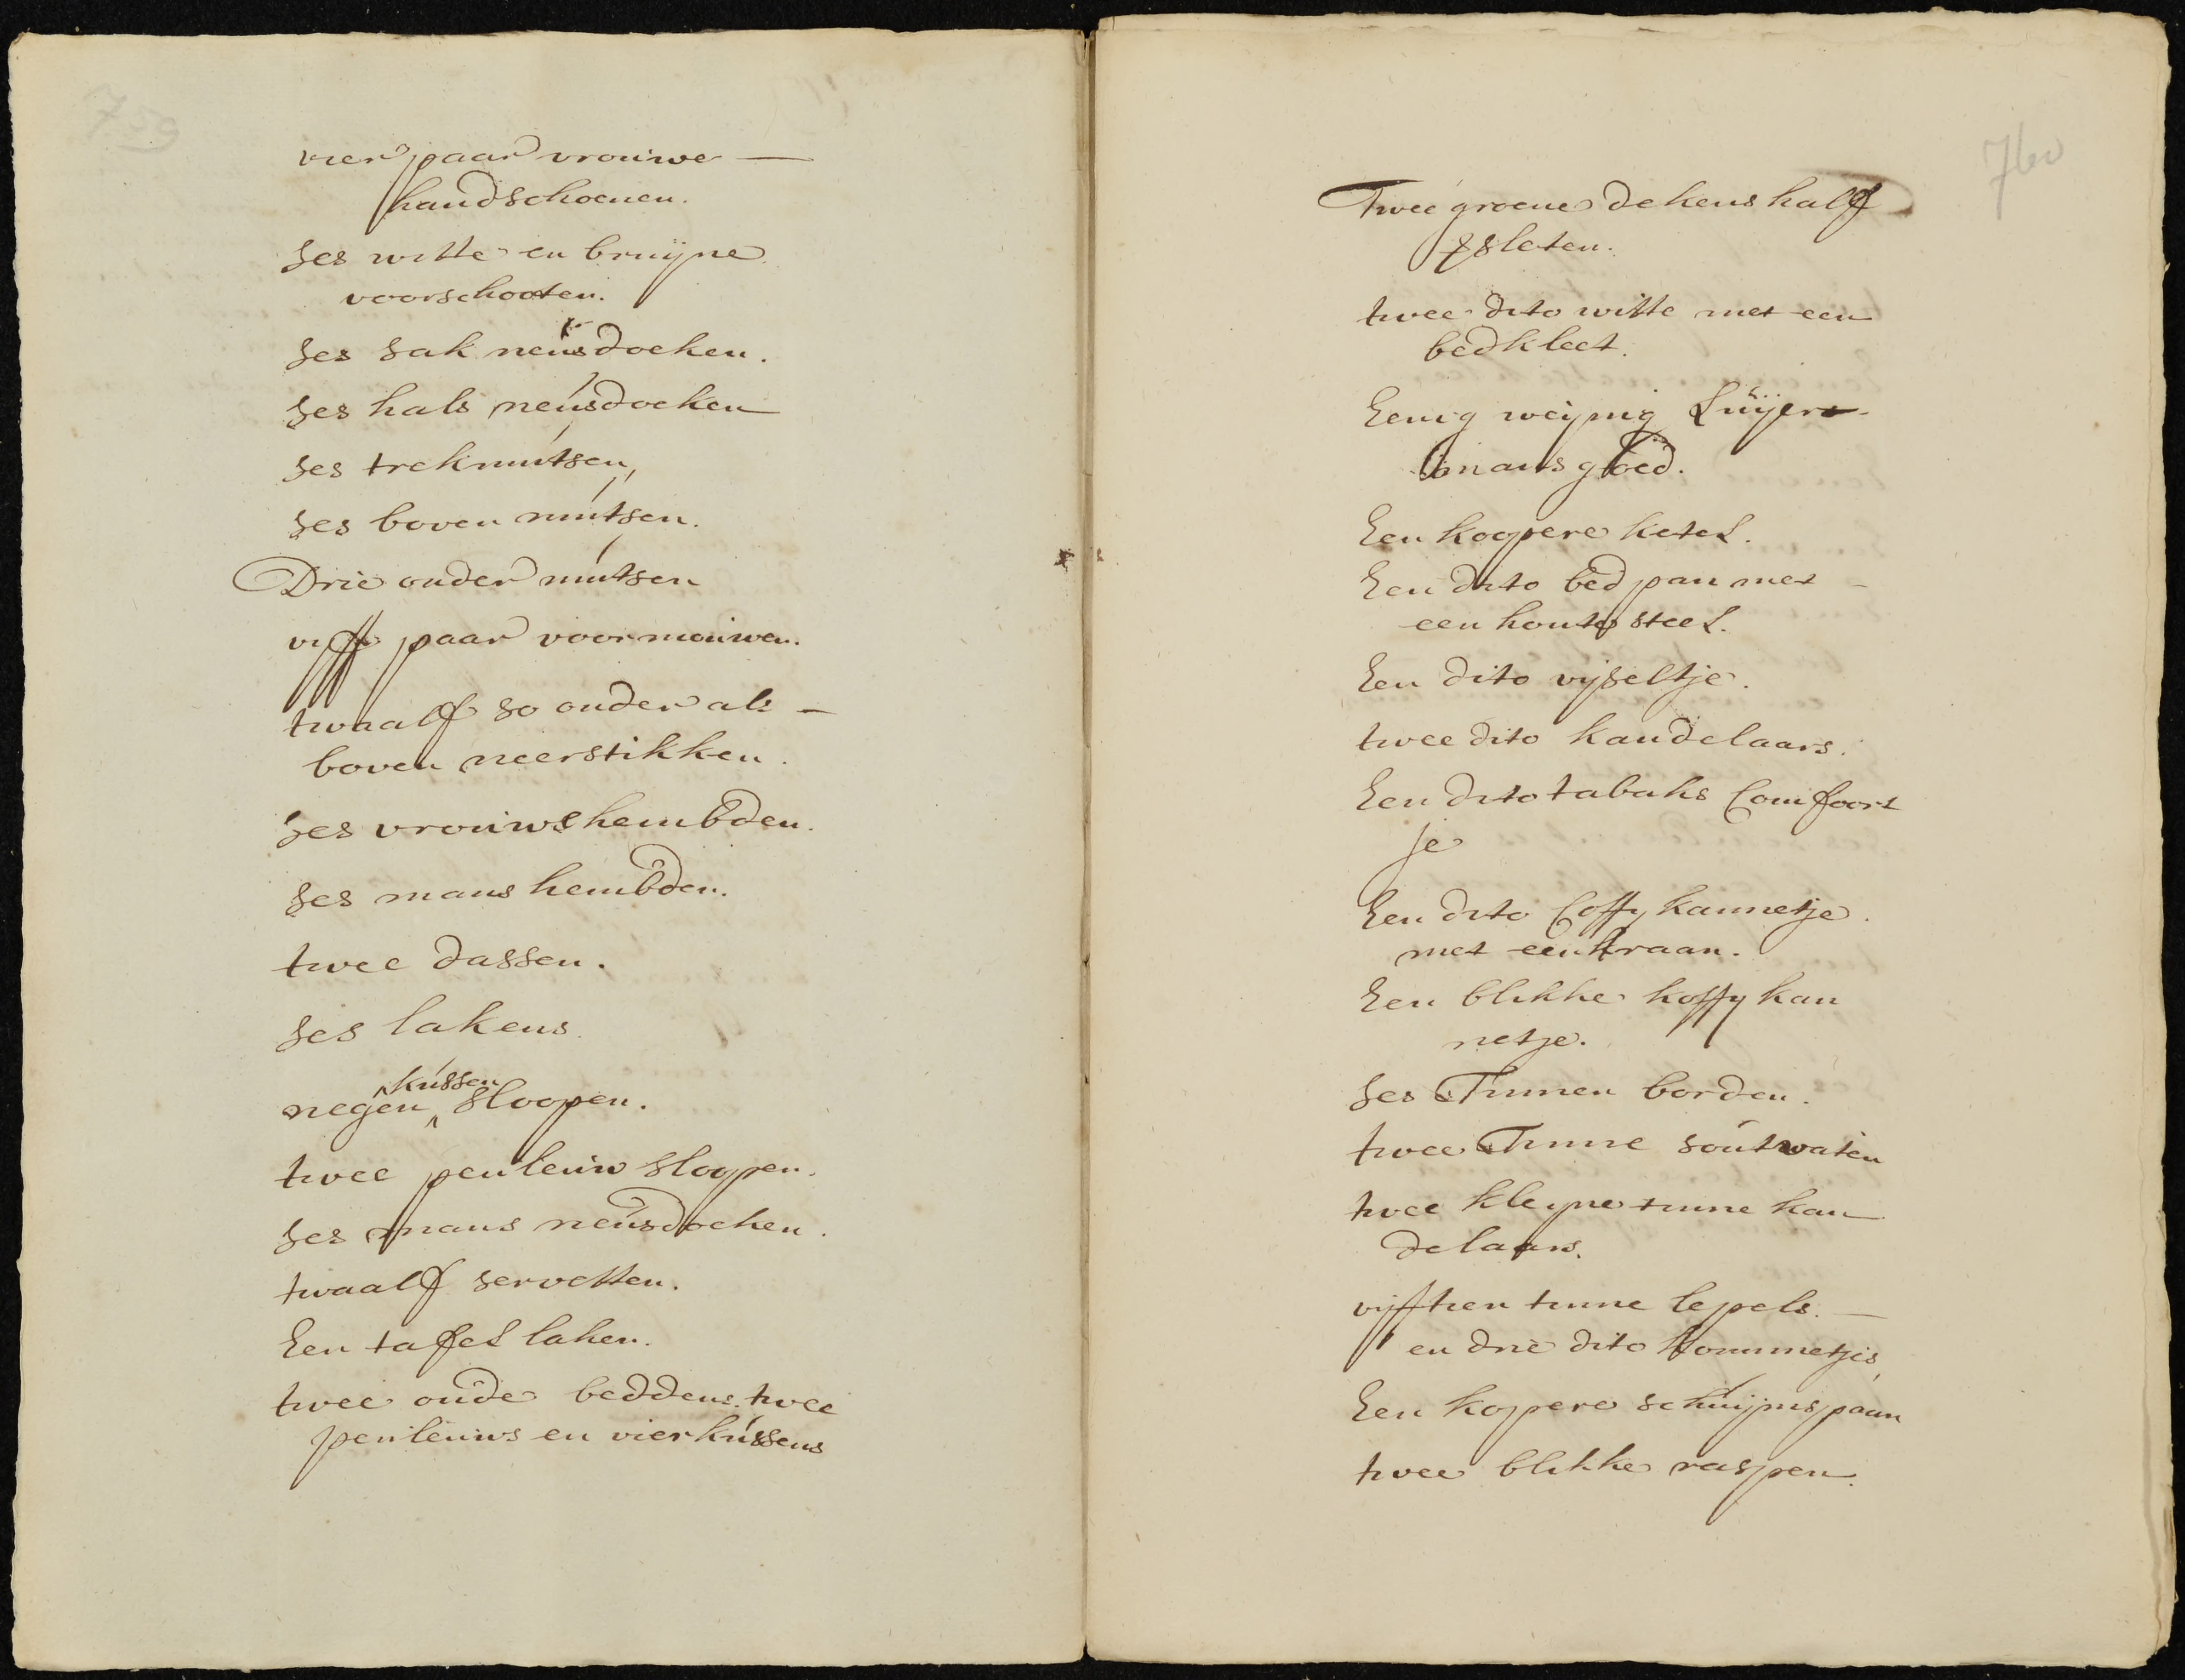 759
vier paar vrouwe —
handschoenen.
ses witte en bruijne
voorschooten.
ses sak neusdoeken.
ses hals neusdoeken
ses trekmutsen,
ses boven mutsen.
Drie onder mutsen
vijff paar voormouwen.
twaalff so onder als —
boven neerstikken.
ses vrouws hembden.
ses mans hembden.
twee dassen.
ses lakens.
negen kussen sloopen.
twee peuleuw sloopen.
ses mans neusdoeken.
twaalff servetten.
Een tafel laken.
twee oude beddens. twee
peuleuws en vier kussens
760
Twee groene dekens half
sleten.
twee dito witte met een
bedkleet.
Eenig weijnig Luijer
mans goed.
Een koopere ketel.
Een dito bed pan met —
een houte steel.
Een dito vijseltje.
twee dito kandelaars.
Een dito tabaks Comfoort
je
Een dito Coffy kannetje.
met een kraan.
Een blikke koffy kan
netje.
ses Tinnen borden.
twee Tinne soutvaten
twee kleyne tinne kan
delaars.
vijfftien tinne lepels. —
en drie dito kommetjes,
Een kopere schuijmspaan
twee blikke raspen.